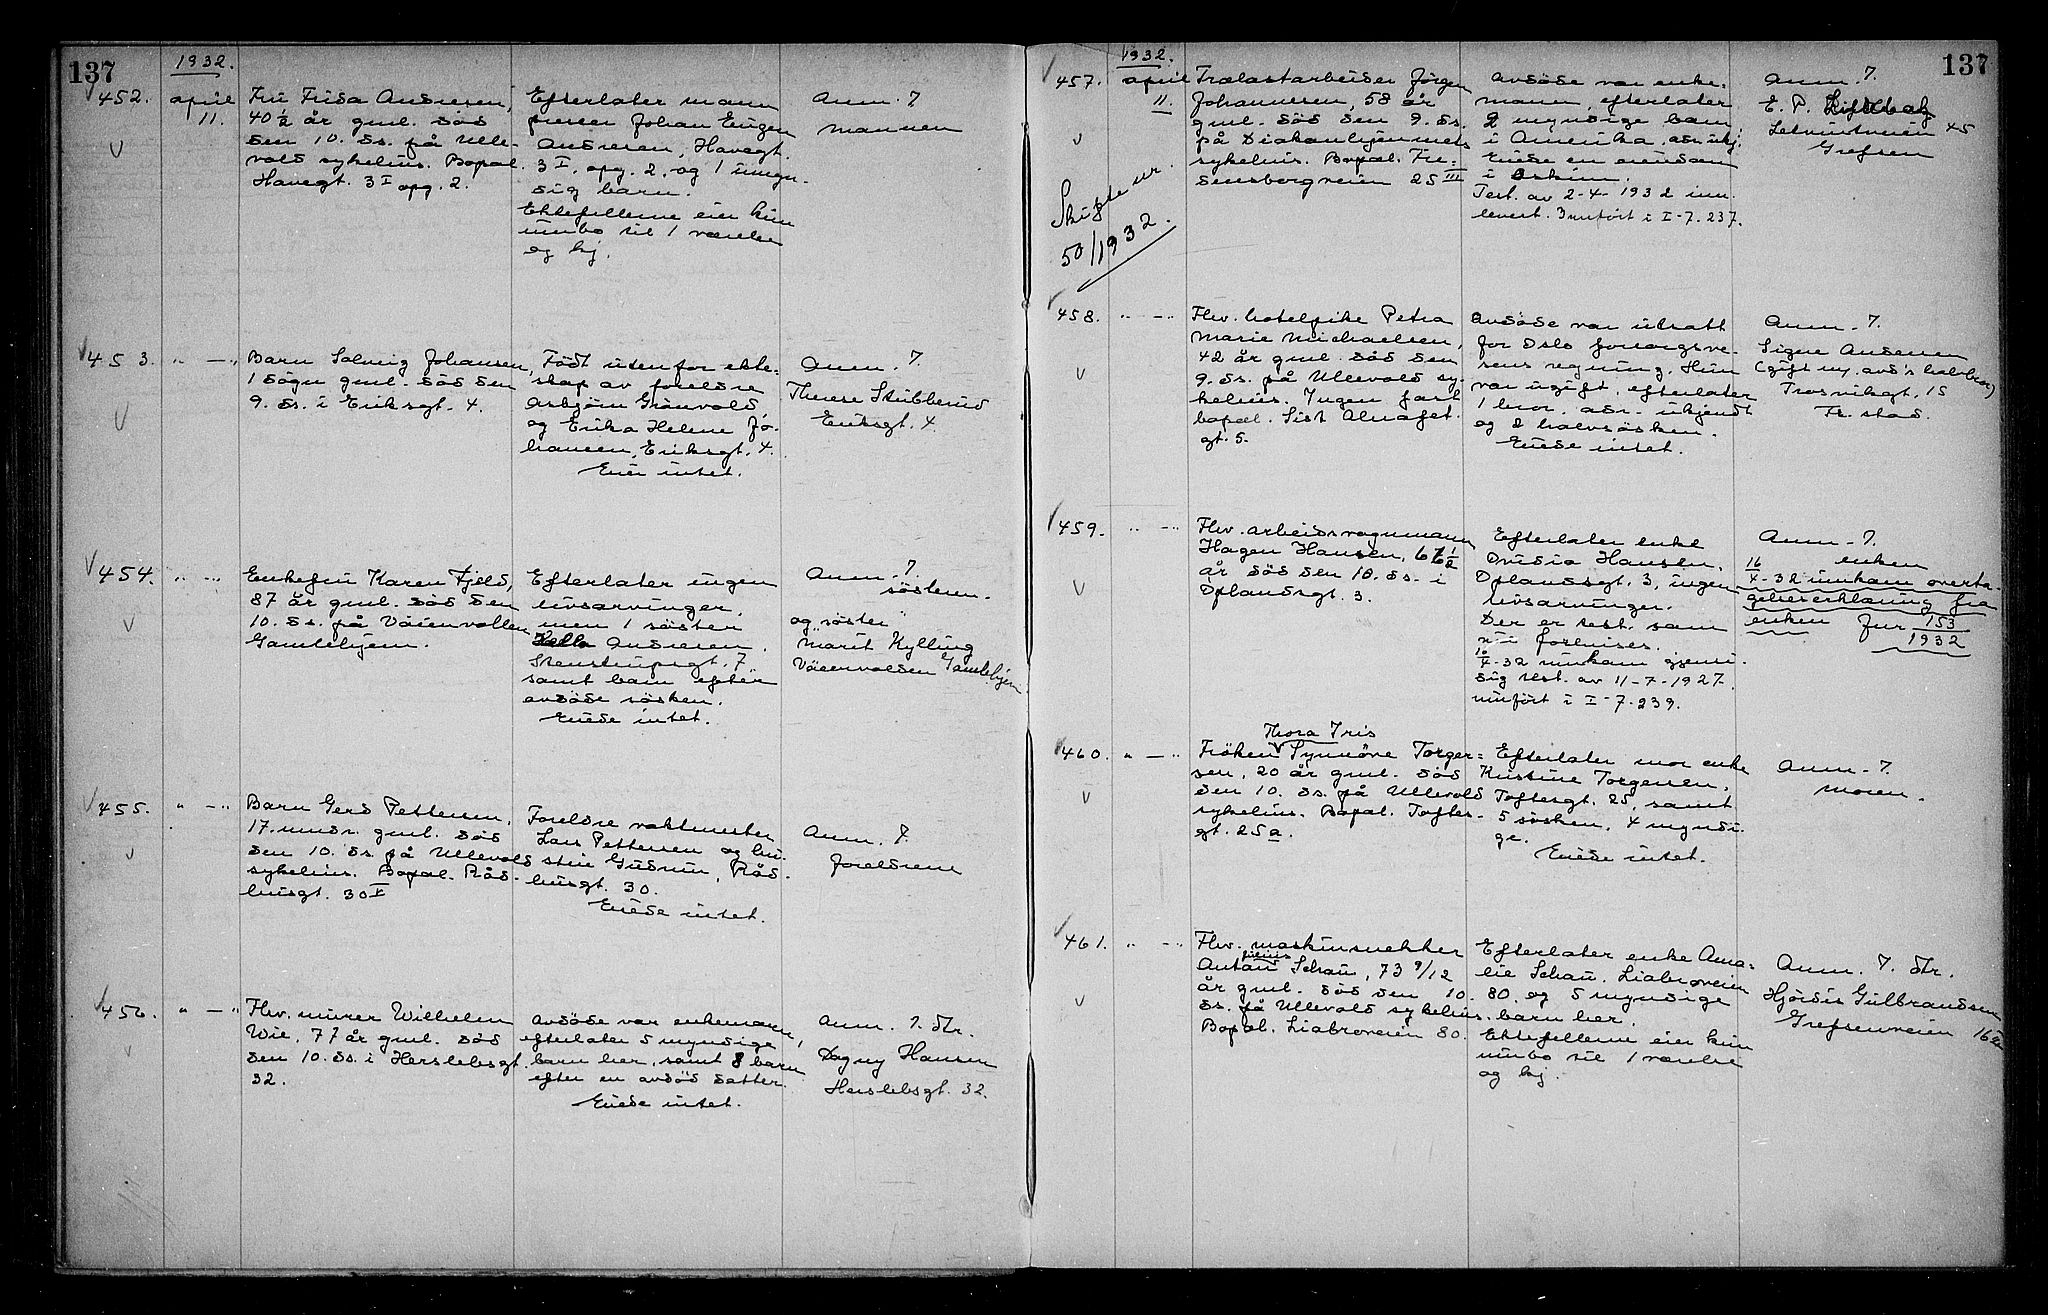 137
1932.
452. april 11.
Fru Frida Andresen,
40½ år gml. död
den 10. ds. på Ulle-
vold sykehus. Bopæl
Havegt. 3 I opg. 2.
Efterlater mann
Johan Eugen
Andresen, Havegt.
3 I, opg. 2, og 1 umyn-
dig barn.
Ektefellerne eier kun
innbo til 1 værelse
og kj.
Anm. 7
mannen
453. " — "
Barn Solveig Johansen,
1 dögn gml. död den
9. ds. i Eriksgt. 4.
Födt utenfor ekte-
skap av foreldre
Asbjörn Grönvold
og Erika Helene Jo-
hansen, Eriksgt. 4.
Eier intet.
Anm. 7.
Therese Stubberud
Eriksgt. 4
454. " — "
Enkefru Karen Fjeld,
87 år gml. död den
10. ds. på Våienvollen
Gamlehjem.
Efterlater ingen
livsarvinger,
men 1 söster
Andresen.
Stenstrupsgt. 7,
samt barn efter
avdöde sösken.
Eiede intet.
Anm. 7.
sösteren.
og "söster"
Marit Kylling
Våienvolden Gamlehjem
455. " — "
Barn Gerd Pettersen,
17 mndr. gml. död
den 10. ds. på Ullevold
sykehus. Bopæl. Råd-
husgt. 30 V
Foreldre vaktmester
Lars Pettersen og hu-
stru Gudrun, Råd-
husgt. 30.
Eiede intet.
Anm. 7.
foreldrene
456. " — "
Fhv. murer Wilhelm
Wie, 77 år gml. död
den 10. ds. i Herslebsgt.
32.
Avdöde var enkemann,
efterlater 5 myndige
barn her, samt 8 barn
efter en avdöd datter.
Eiede intet.
Anm. 7. dtr.
Dagny Hansen
Herslebsgt. 32.
137
1932.
457. april 11.
Skifte nr
50/1932.
Trælastarbeider Jörgen
Johannesen, 58 år
gml. död den 9. ds.
på Diakonhjemmets
sykehus. Bopæl. Fre-
densborgveien 25 III
Avdöde var enke-
mann, efterlater
2 myndige barn
i Amerika, adr. ukj.
Eiede en eiendom
i Askim.
Test. av 2-4-1932 inn-
levert. Innfört i I-7-237.
Anm. 7.
E. P.
45
Grefsen
458. " — "
Fhv. hotelpike Petra
Marie Michaelsen,
42 år gml. död den
9. ds. på Ullevold sy-
kehus. Ingen fast
bopæl. Sist Almafet.
gt. 5.
Avdöde var utsatt
for Oslo forsorgsve-
sens regning. Hun
var ugift, efterlater
1 bror, adr. ukjendt
og 2 halvsösken.
Eiede intet.
Anm. 7.
Signe Andersen
(gift m/ avd's halvbror)
Trosvikgt. 15
Fr. stad.
459. " — "
Fhv. arbeidsvognmann
Hagen Hansen, 67½
år död den 10. ds. i
Oplandsgt. 3.
Efterlater enke
Ovidia Hansen,
Oplandsgt. 3, ingen
livsarvinger.
Der er test. som
forevises.
16/4-32 innkom gjensi-
dig test. av 11-7-1927.
innfört i I-7-239.
Anm. 7.
enken
16/4-32 innkom overta-
gelseserklæring fra
enken Jnr 153/1932
460. " — "
Thora Iris
Fröken Synnöve Torger-
sen, 20 år gml. död
den 10. ds. på Ullevold
sykehus. Bopæl. Toftes-
gt. 25a.
Efterlater mor enke
Kristine Torgersen,
Toftesgt. 25, samt
5 sösken, 4 myndi-
ge.
Eiede intet.
Anm. 7.
moren.
461. " — "
Fhv. maskinsnekker
Antan Schau, 73 9/12
år gml. död den 10.
ds. på Ullevold sykehus.
Bopæl. Liabroveien 80.
Efterlater enke Ama-
lie Schau, Liabroveien
80. og 5 myndige
barn her.
Ektefellerne eier kun
innbo til 1 værelse
og kj.
Anm. 7. dtr.
Hjördis Gulbrandsen
Grefsenveien 16